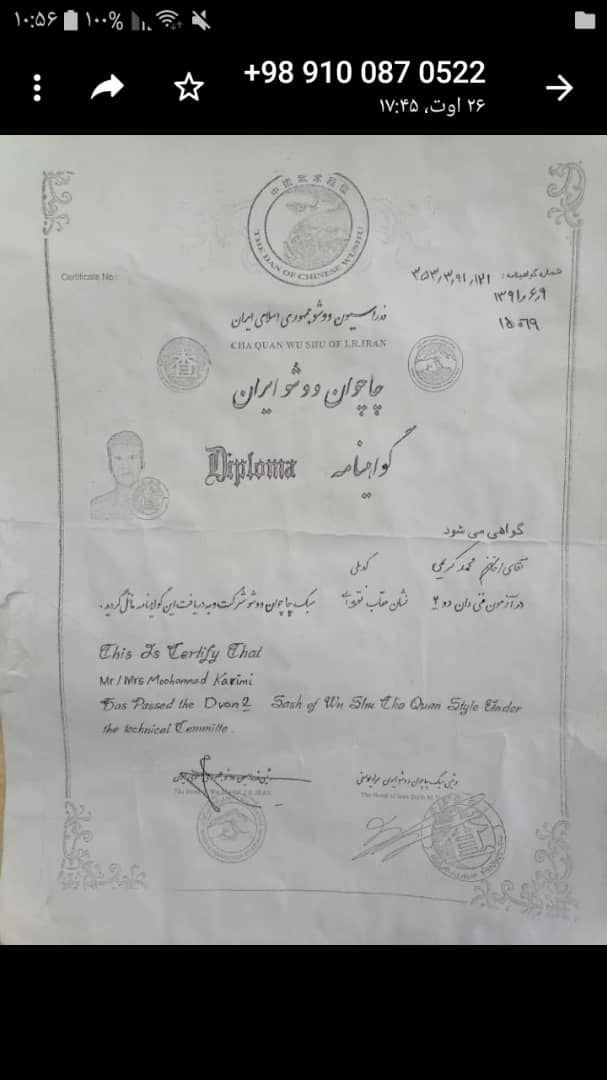 ۱۰:۵۶ ۱۰۰%
+98 910 087 0522
۲۶ اوت، ۱۷:۴۵
THE DAN OF CHINESE WUSHU
Certificate No:
شماره گواهینامه: ۳۵۳٫۳٫۹۱٫۱۲۱
۱۳۹۱٫۶٫۹
۱۵۰۶۹
فدراسیون ووشو جمهوری اسلامی ایران
CHA QUAN WU SHU OF I.R.IRAN
چاچوان ووشو ایران
Diploma گواهینامه
گواهی می شود
آقای / خانم محمد کریمی
در آزمون فنی دان دو ۲ نشان سبک چاچوان ووشو شرکت و به دریافت این گواهینامه نائل گردید.
This Is Certify That
Mr / Mrs Moohammad Karimi
Has Passed the Dvan2 Sash of Wu Shu Cha Quan Style Under
the technical Committe.
رئیس سبک چاچوان ووشو ایران